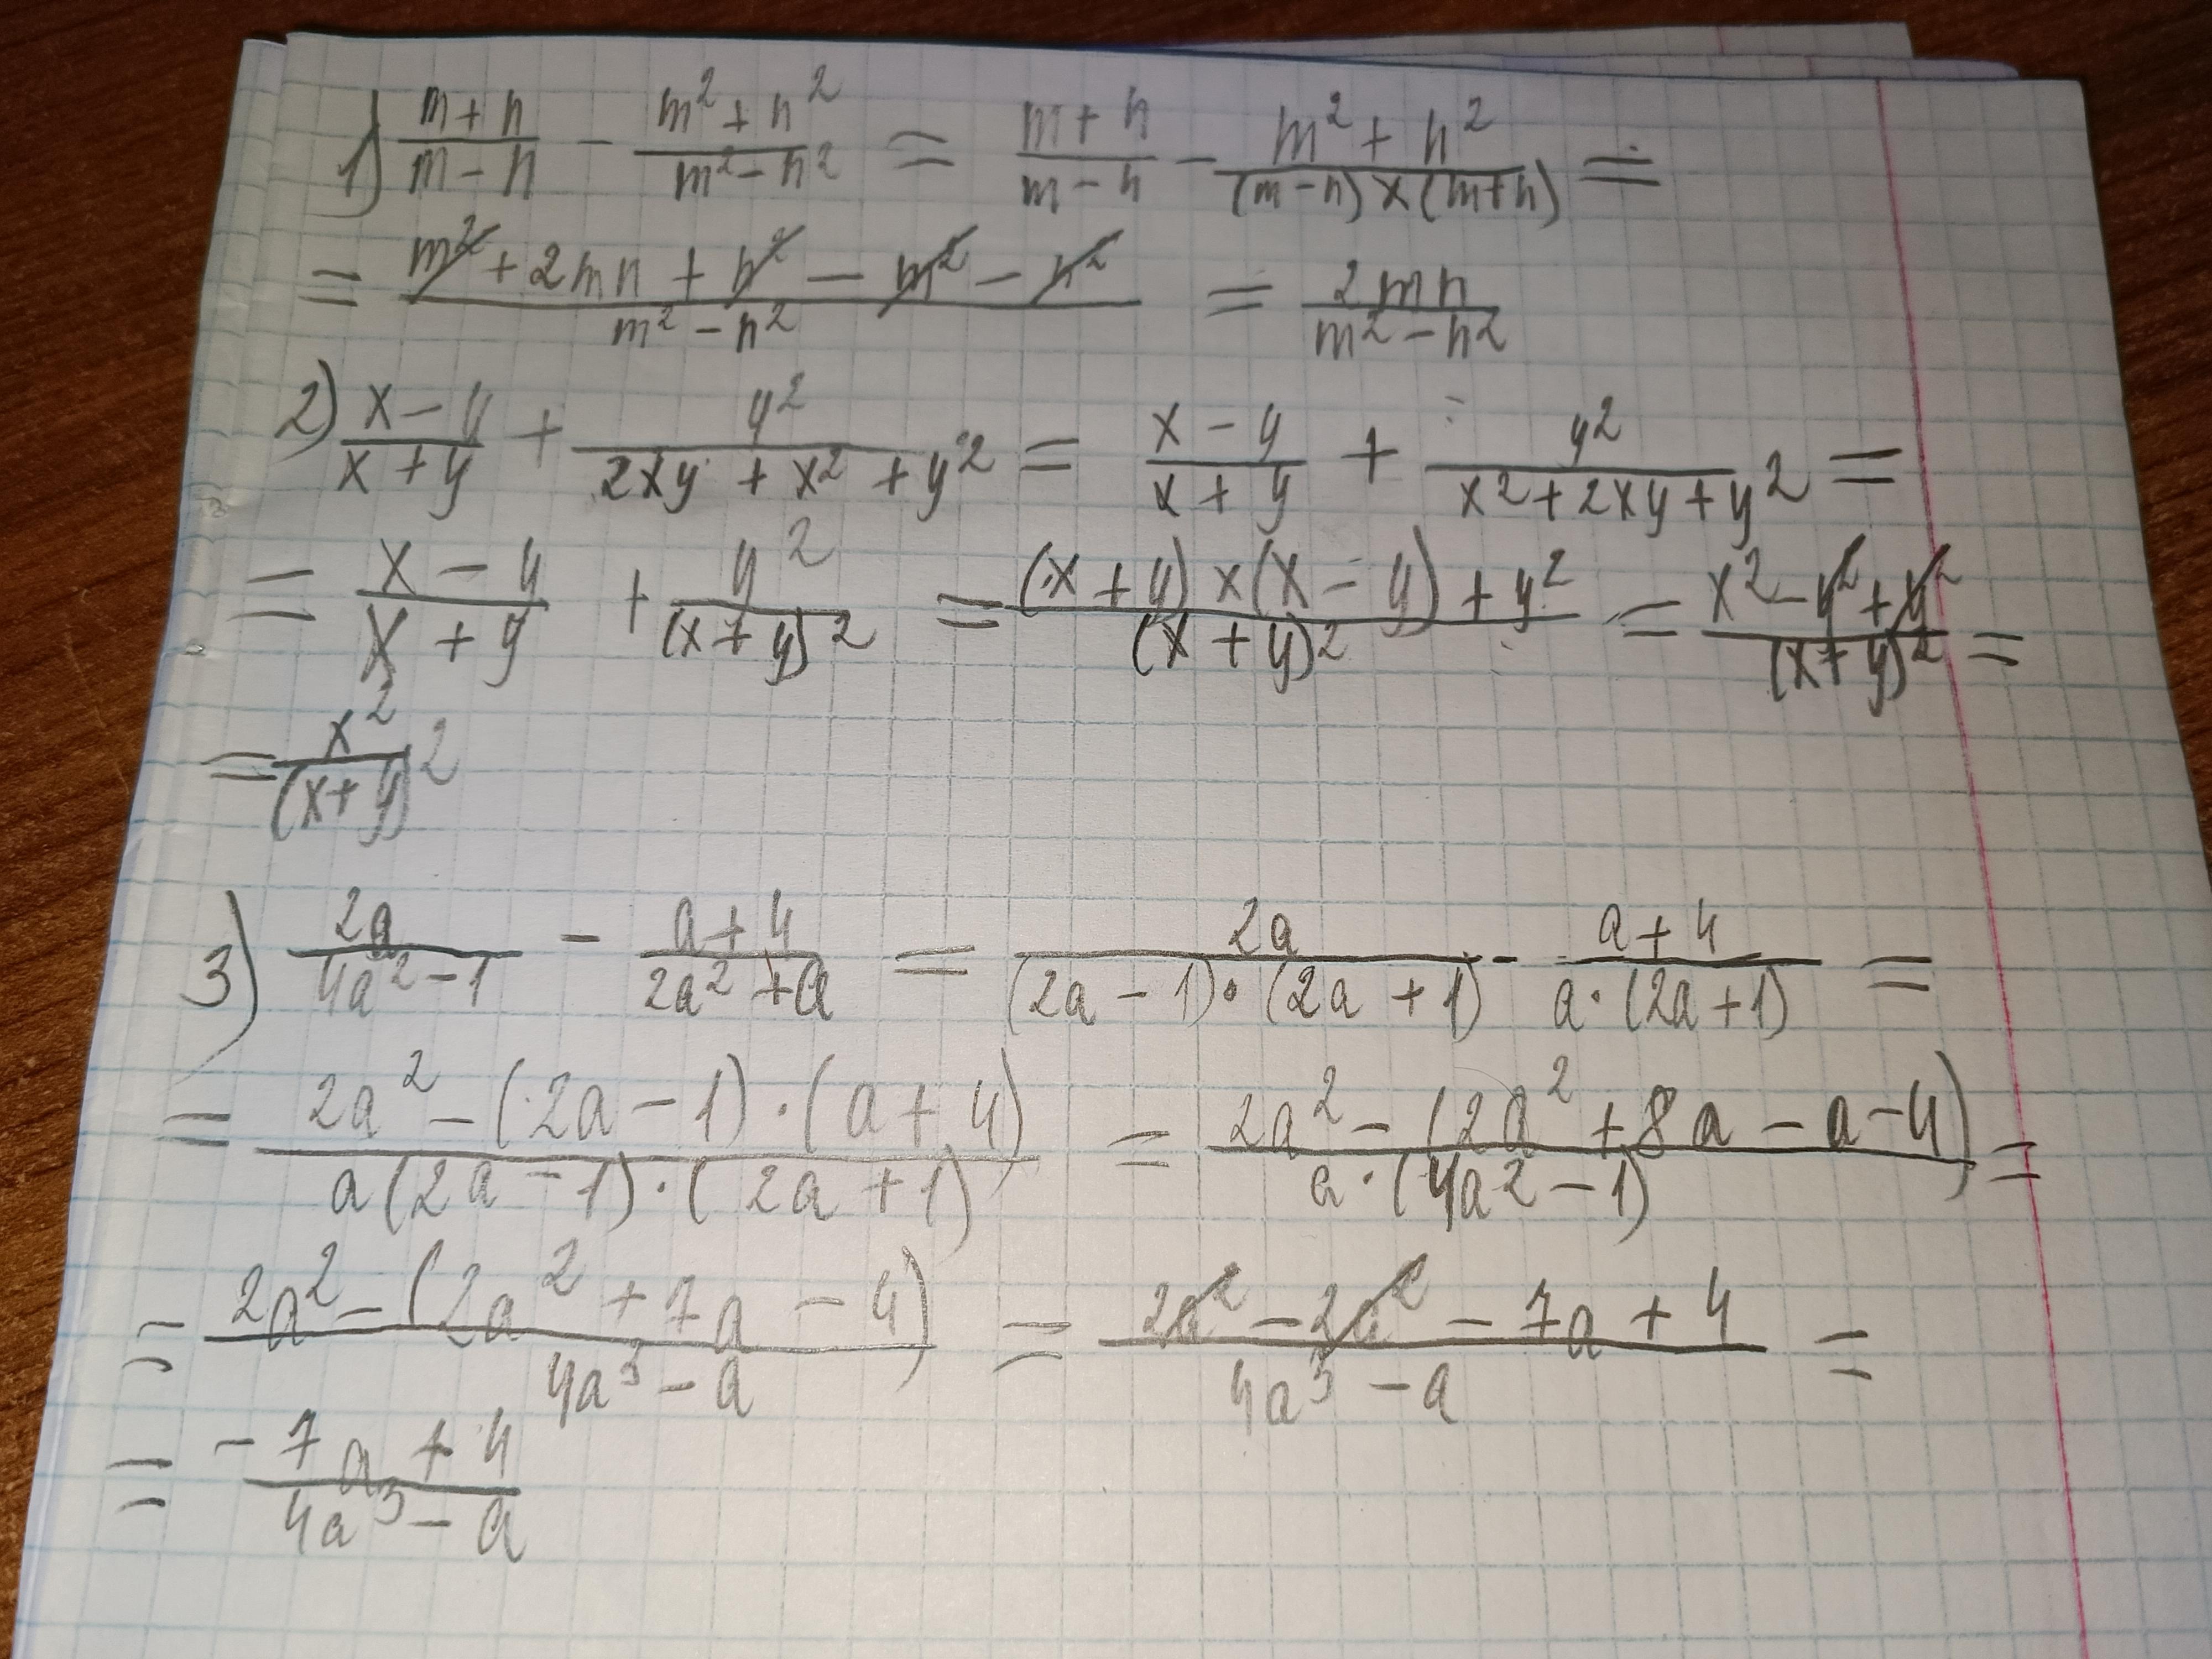 1) (m+n)/(m-n) - (m²+n²)/(m²-n²) = (m+n)/(m-n) - (m²+n²)/((m-n)×(m+n)) =
= (m²+2mn+n²-m²-n²)/(m²-n²) = 2mn/(m²-n²)
2) (x-y)/(x+y) + y²/(2xy+x²+y²) = (x-y)/(x+y) + y²/(x²+2xy+y²) =
= (x-y)/(x+y) + y²/(x+y)² = ((x+y)×(x-y)+y²)/(x+y)² = (x²-y²+y²)/(x+y)² =
= x²/(x+y)²
3) 2a/(4a²-1) - (a+4)/(2a²+a) = 2a/((2a-1)·(2a+1)) - (a+4)/(a·(2a+1)) =
= (2a²-(2a-1)·(a+4))/(a(2a-1)·(2a+1)) = (2a²-(2a²+8a-a-4))/(a·(4a²-1)) =
= (2a²-(2a²+7a-4))/(4a³-a) = (2a²-2a²-7a+4)/(4a³-a) =
= (-7a+4)/(4a³-a)